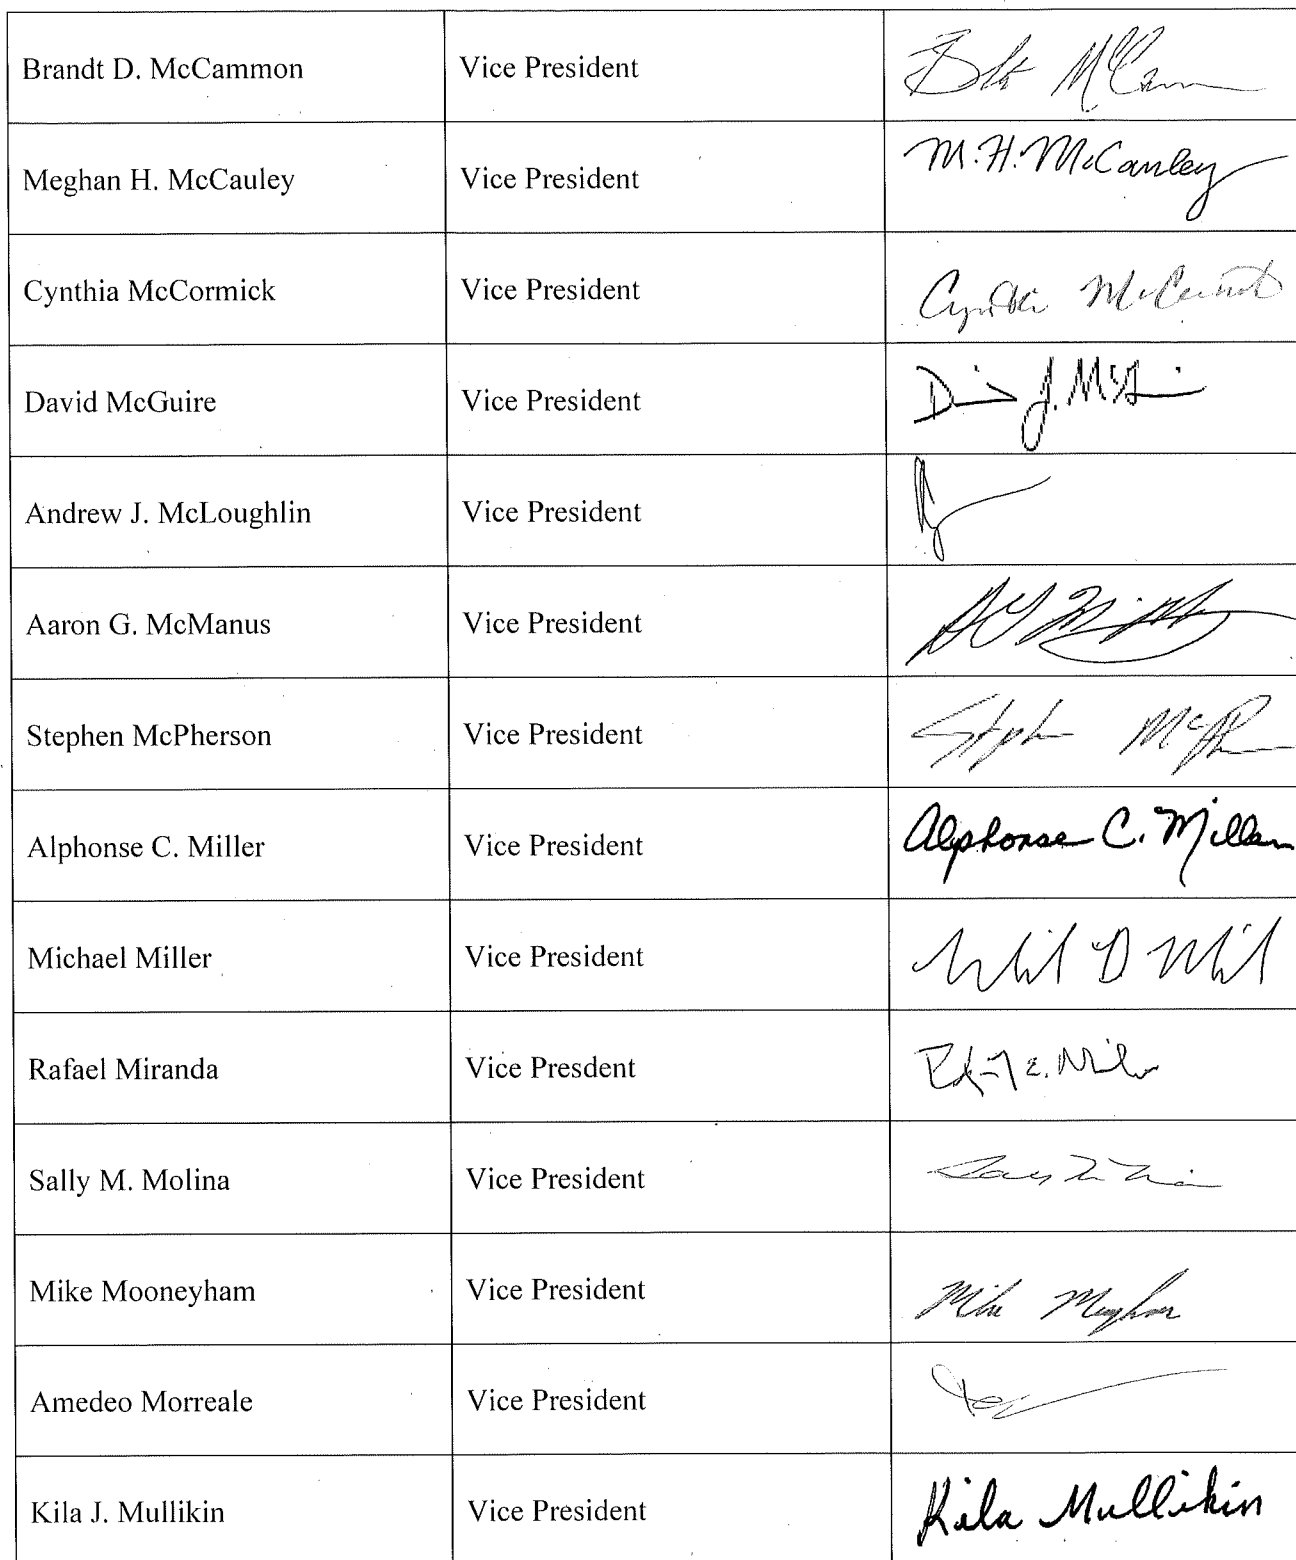 Brandt D. McCammon Vice President
Meghan H. McCauley Vice President M. H. McCauley
Cynthia McCormick Vice President Cynthia
David McGuire Vice President
Andrew J. McLoughlin Vice President
Aaron G. McManus Vice President
Stephen McPherson Vice President
Alphonse C. Miller Vice President Alphonse C. Miller
Michael Miller Vice President
Rafael Miranda Vice Presdent
Sally M. Molina Vice President
Mike Mooneyham Vice President Mike
Amedeo Morreale Vice President
Kila J. Mullikin Vice President Kila Mullikin